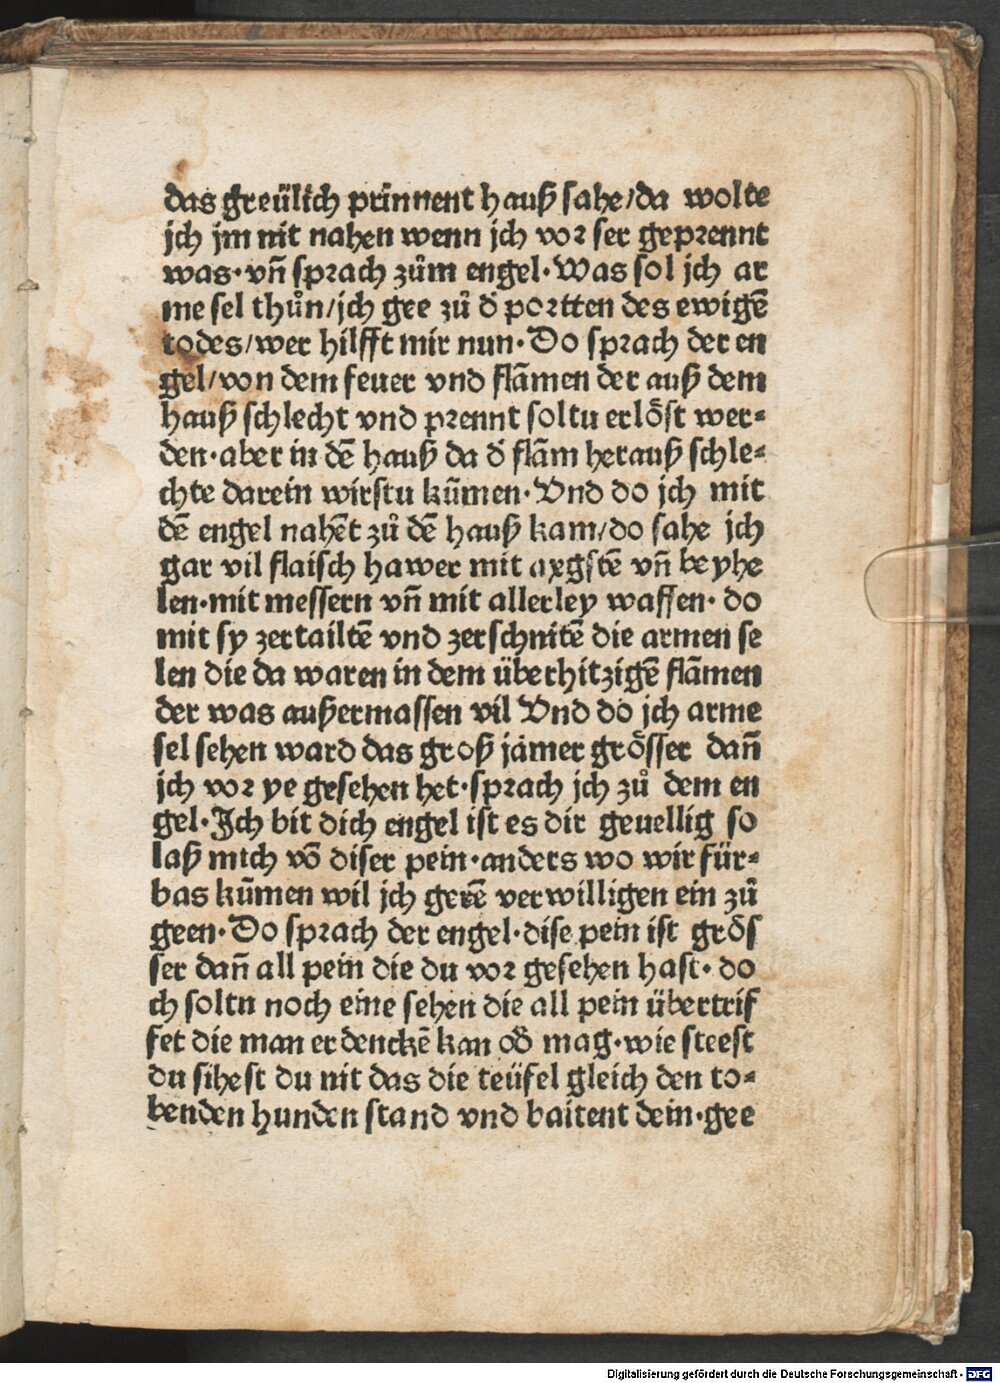 das greülich prinnent hauß sahe/da wolte
jch jm nit nahen wenn jch vor ser geprennt
was·vñ sprach zům engel·Was sol jch ar
me sel thůn/jch gee zů d̕ portten des ewigē
todes/wer hilfft mir nun·Do sprach der en
gel/von dem feuer vnd flāmen der auß dem
hauß schlecht vnd prennt soltu erlöst wer⸗
den·aber in dē hauß da d̕ flām herauß schle⸗
chte darein wirstu kūmen·Vnd do jch mit
dē engel nahēt zů dē hauß kam/do sahe jch
gar vil flaisch hawer mit axgstē vñ beyhe
len·mit messern vñ mit allerley waffen·do
mit sy zertailtē vnd zerschnitē die armen se
len die da waren in dem überhitzigē flāmen
der was außermassen vil Vnd do jch arme
sel sehen ward das groß jamer grösser dañ
jch vor ye gesehen het·sprach jch zů dem en
gel·Jch bit dich engel ist es dir geuellig so
laß mich vō diser pein·anders wo wir für⸗
bas kūmen wil jch gerē verwilligen ein zů
geen·Do sprach der engel·dise pein ist grös
ser dañ all pein die du vor gesehen hast·do
ch soltu noch eine sehen die all pein übertrif
fet die man erdenckē kan od̕ mag·wie steest
du sihest du nit das die teüfel gleich den to⸗
benden hunden stand vnd baitent dein·gee
Digitalisierung gefördert durch die Deutsche Forschungsgemeinschaft - DFG